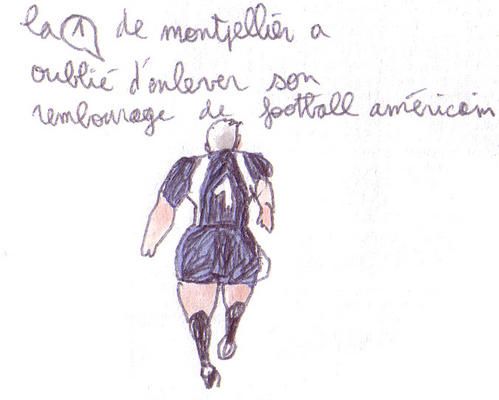 la 1 de montpellier a
oublié d'enlever son
rembourage de football américain
1